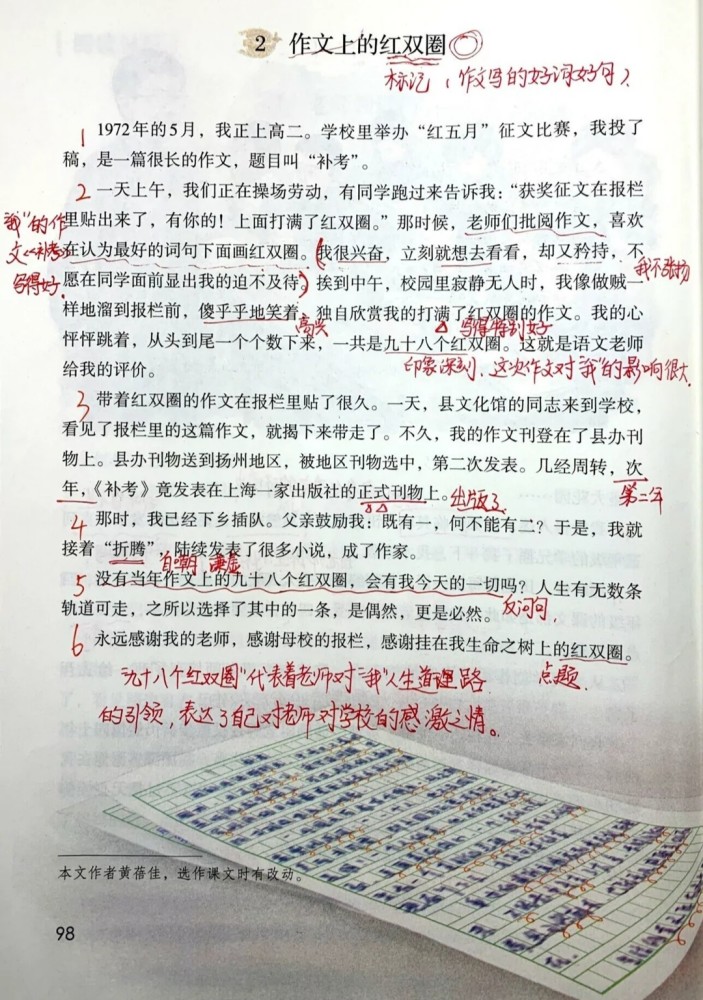 2 作文上的红双圈
标记（作文写的好词好句）
1 1972年的5月，我正上高二。学校里举办“红五月”征文比赛，我投了
稿，是一篇很长的作文，题目叫“补考”。
2 一天上午，我们正在操场劳动，有同学跑过来告诉我：“获奖征文在报栏
里贴出来了，有你的！上面打满了红双圈。”那时候，老师们批阅作文，喜欢
在认为最好的词句下面画红双圈。我很兴奋，立刻就想去看看，却又矜持，不
愿在同学面前显出我的迫不及待。挨到中午，校园里寂静无人时，我像做贼一
样地溜到报栏前，傻乎乎地笑着，独自欣赏我的打满了红双圈的作文。我的心
怦怦跳着，从头到尾一个个数下来，一共是九十八个红双圈。这就是语文老师
给我的评价。
“我”的作
文《补考》
写得好.
我不张扬
高兴
写得特别好
印象深刻、这次作文对“我”的影响很大.
3 带着红双圈的作文在报栏里贴了很久。一天，县文化馆的同志来到学校，
看见了报栏里的这篇作文，就揭下来带走了。不久，我的作文刊登在了县办刊
物上。县办刊物送到扬州地区，被地区刊物选中，第二次发表。几经周转，次
年，《补考》竟发表在上海一家出版社的正式刊物上。
出版了
第二年
4 那时，我已经下乡插队。父亲鼓励我：既有一，何不能有二？于是，我就
接着“折腾”，陆续发表了很多小说，成了作家。
自嘲 谦虚
5 没有当年作文上的九十八个红双圈，会有我今天的一切吗？人生有无数条
轨道可走，之所以选择了其中的一条，是偶然，更是必然。
反问句.
6 永远感谢我的老师，感谢母校的报栏，感谢挂在我生命之树上的红双圈。
点题.
“九十八个红双圈”代表着老师对“我”人生道路
的引领，表达了自己对老师对学校的感激之情。
本文作者黄蓓佳，选作课文时有改动。
98